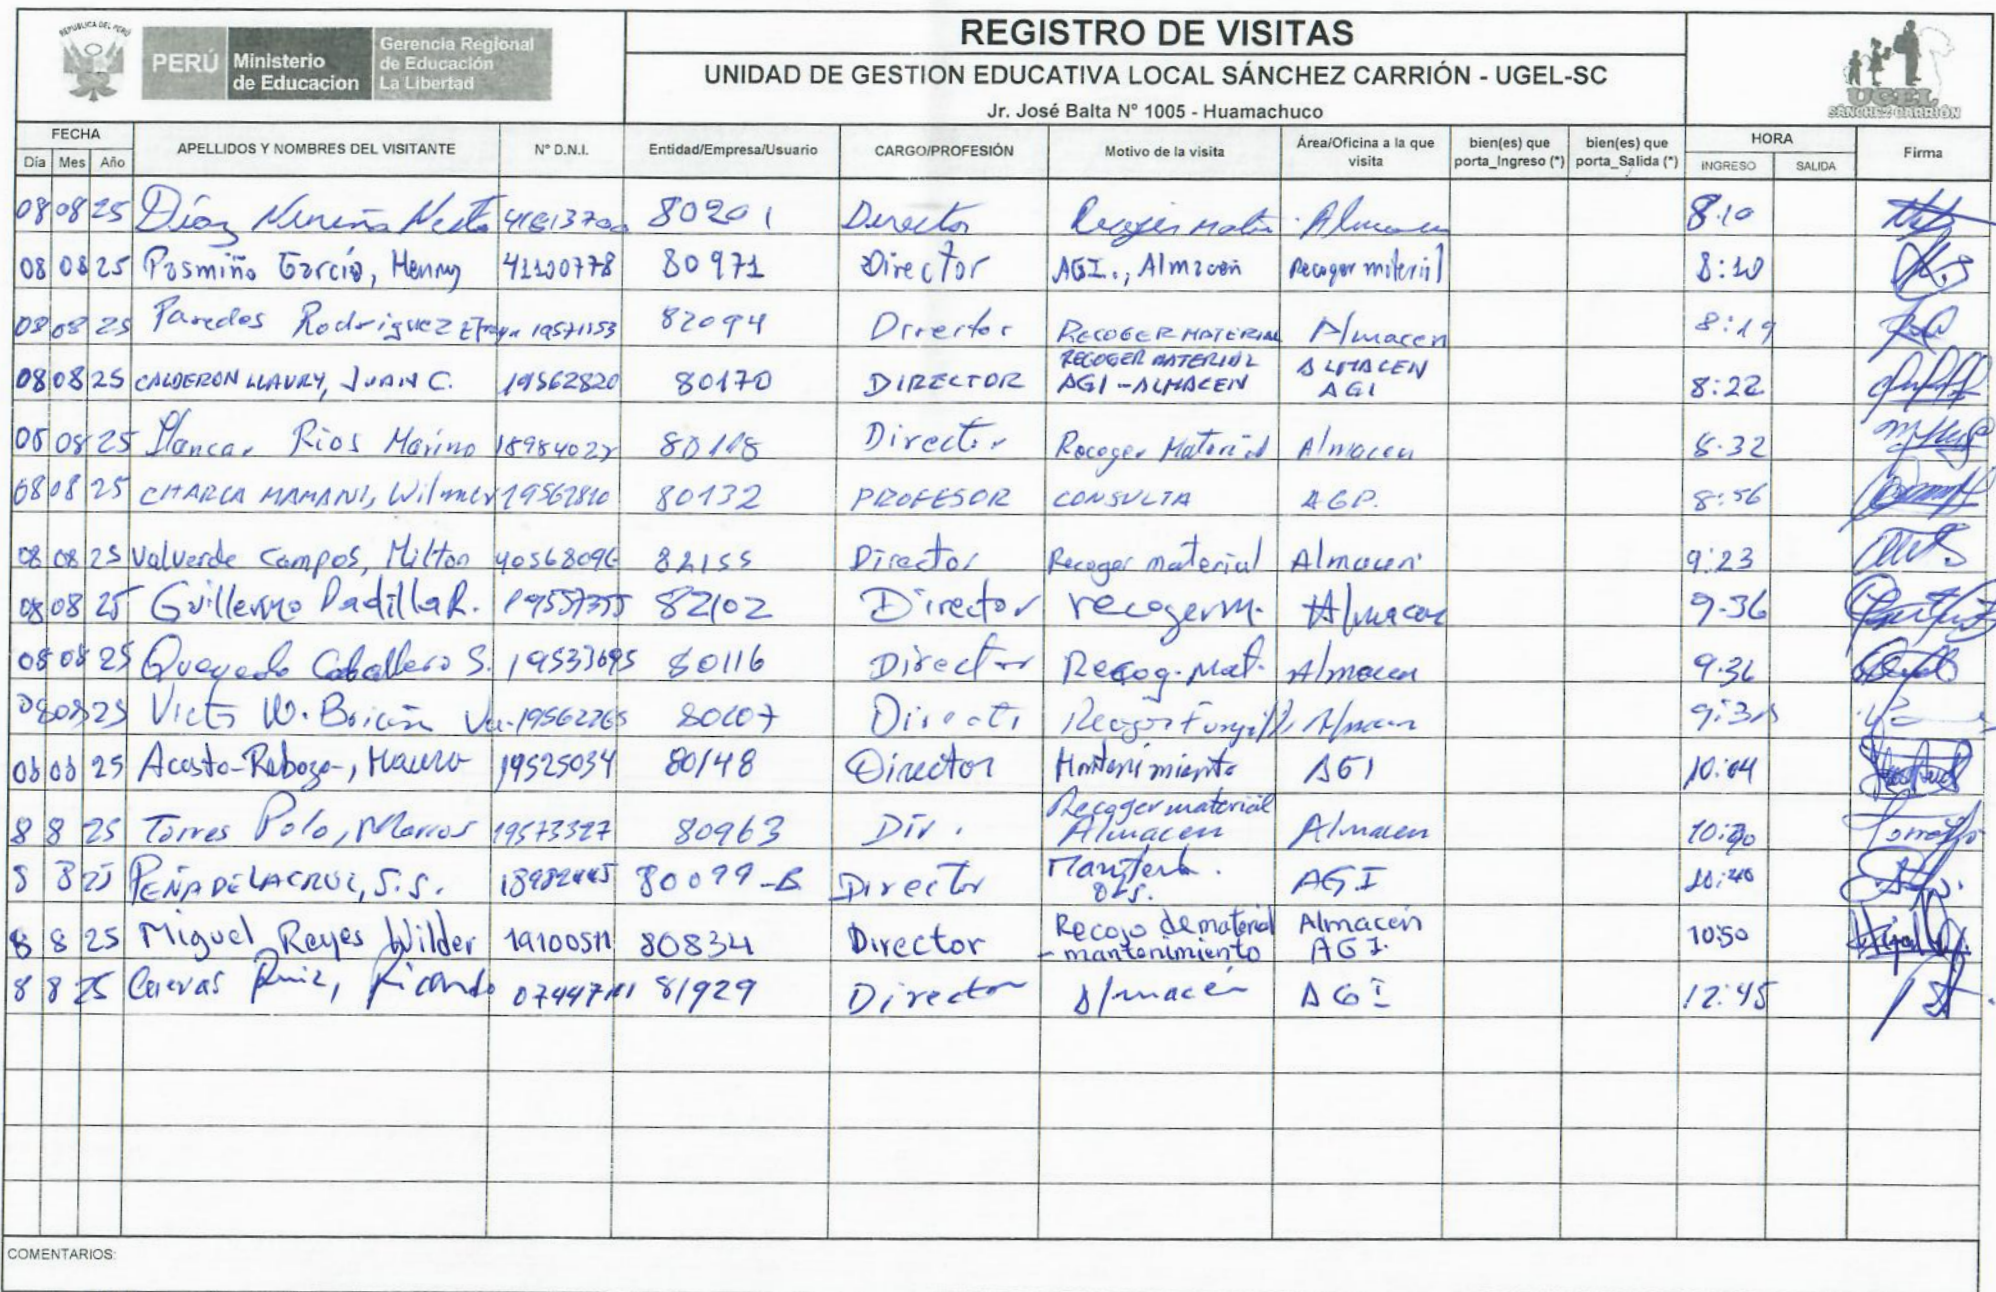 REPUBLICA DEL PERÚ
PERÚ Ministerio de Educacion Gerencia Regional de Educación La Libertad
REGISTRO DE VISITAS
UNIDAD DE GESTION EDUCATIVA LOCAL SÁNCHEZ CARRIÓN - UGEL-SC
Jr. José Balta N° 1005 - Huamachuco
UGEL SÁNCHEZ CARRIÓN
FECHA Día Mes Año APELLIDOS Y NOMBRES DEL VISITANTE N° D.N.I. Entidad/Empresa/Usuario CARGO/PROFESIÓN Motivo de la visita Área/Oficina a la que visita bien(es) que porta_Ingreso (*) bien(es) que porta_Salida (*) HORA INGRESO SALIDA Firma
08 08 25 Díaz 80201 Director Almacen 8:10
08 08 25 García, Henry 41100778 80971 Director AGI., Almacen Recoger material 8:10
08 08 25 Paredes Rodriguez 19571153 82094 Director RECOGER MATERIAL Almacen 8:19
08 08 25 CALDERON LLAURY, JUAN C. 19562820 80170 DIRECTOR RECOGER MATERIAL AGI - ALMACEN ALMACEN AGI 8:22
08 08 25 Rios Marino Director Recoger Material Almacen 8:32
08 08 25 CHARCA MAMANI, Wilmer 19562810 80132 PROFESOR CONSULTA AGP. 8:56
08 08 25 Valverde Campos, Milton 40568096 82155 Director Recoger material Almacen 9:23
08 08 25 Guillermo Padilla R. 82102 Director recoger m. Almacen 9:36
08 08 25 Quevedo Caballero S. 19533695 80116 Director Recog. Mat. Almacen 9:36
08 08 25 19562265 Almacen
08 08 25 19525034 80148 Director Mantenimiento AGI 10:04
8 8 25 Torres Polo, Marcos 19573327 80963 Dir. Recoger material Almacen Almacen
8 8 25 PEÑA DE LA CRUZ, S.S. 80099-B Director AGI 10:40
8 8 25 Miguel Reyes Wilder 80834 Director Recojo de material - mantenimiento Almacen AGI. 10:50
8 8 25 Cuevas Ruiz, Ricardo 81929 Director Almacén AGI 12:45
COMENTARIOS: